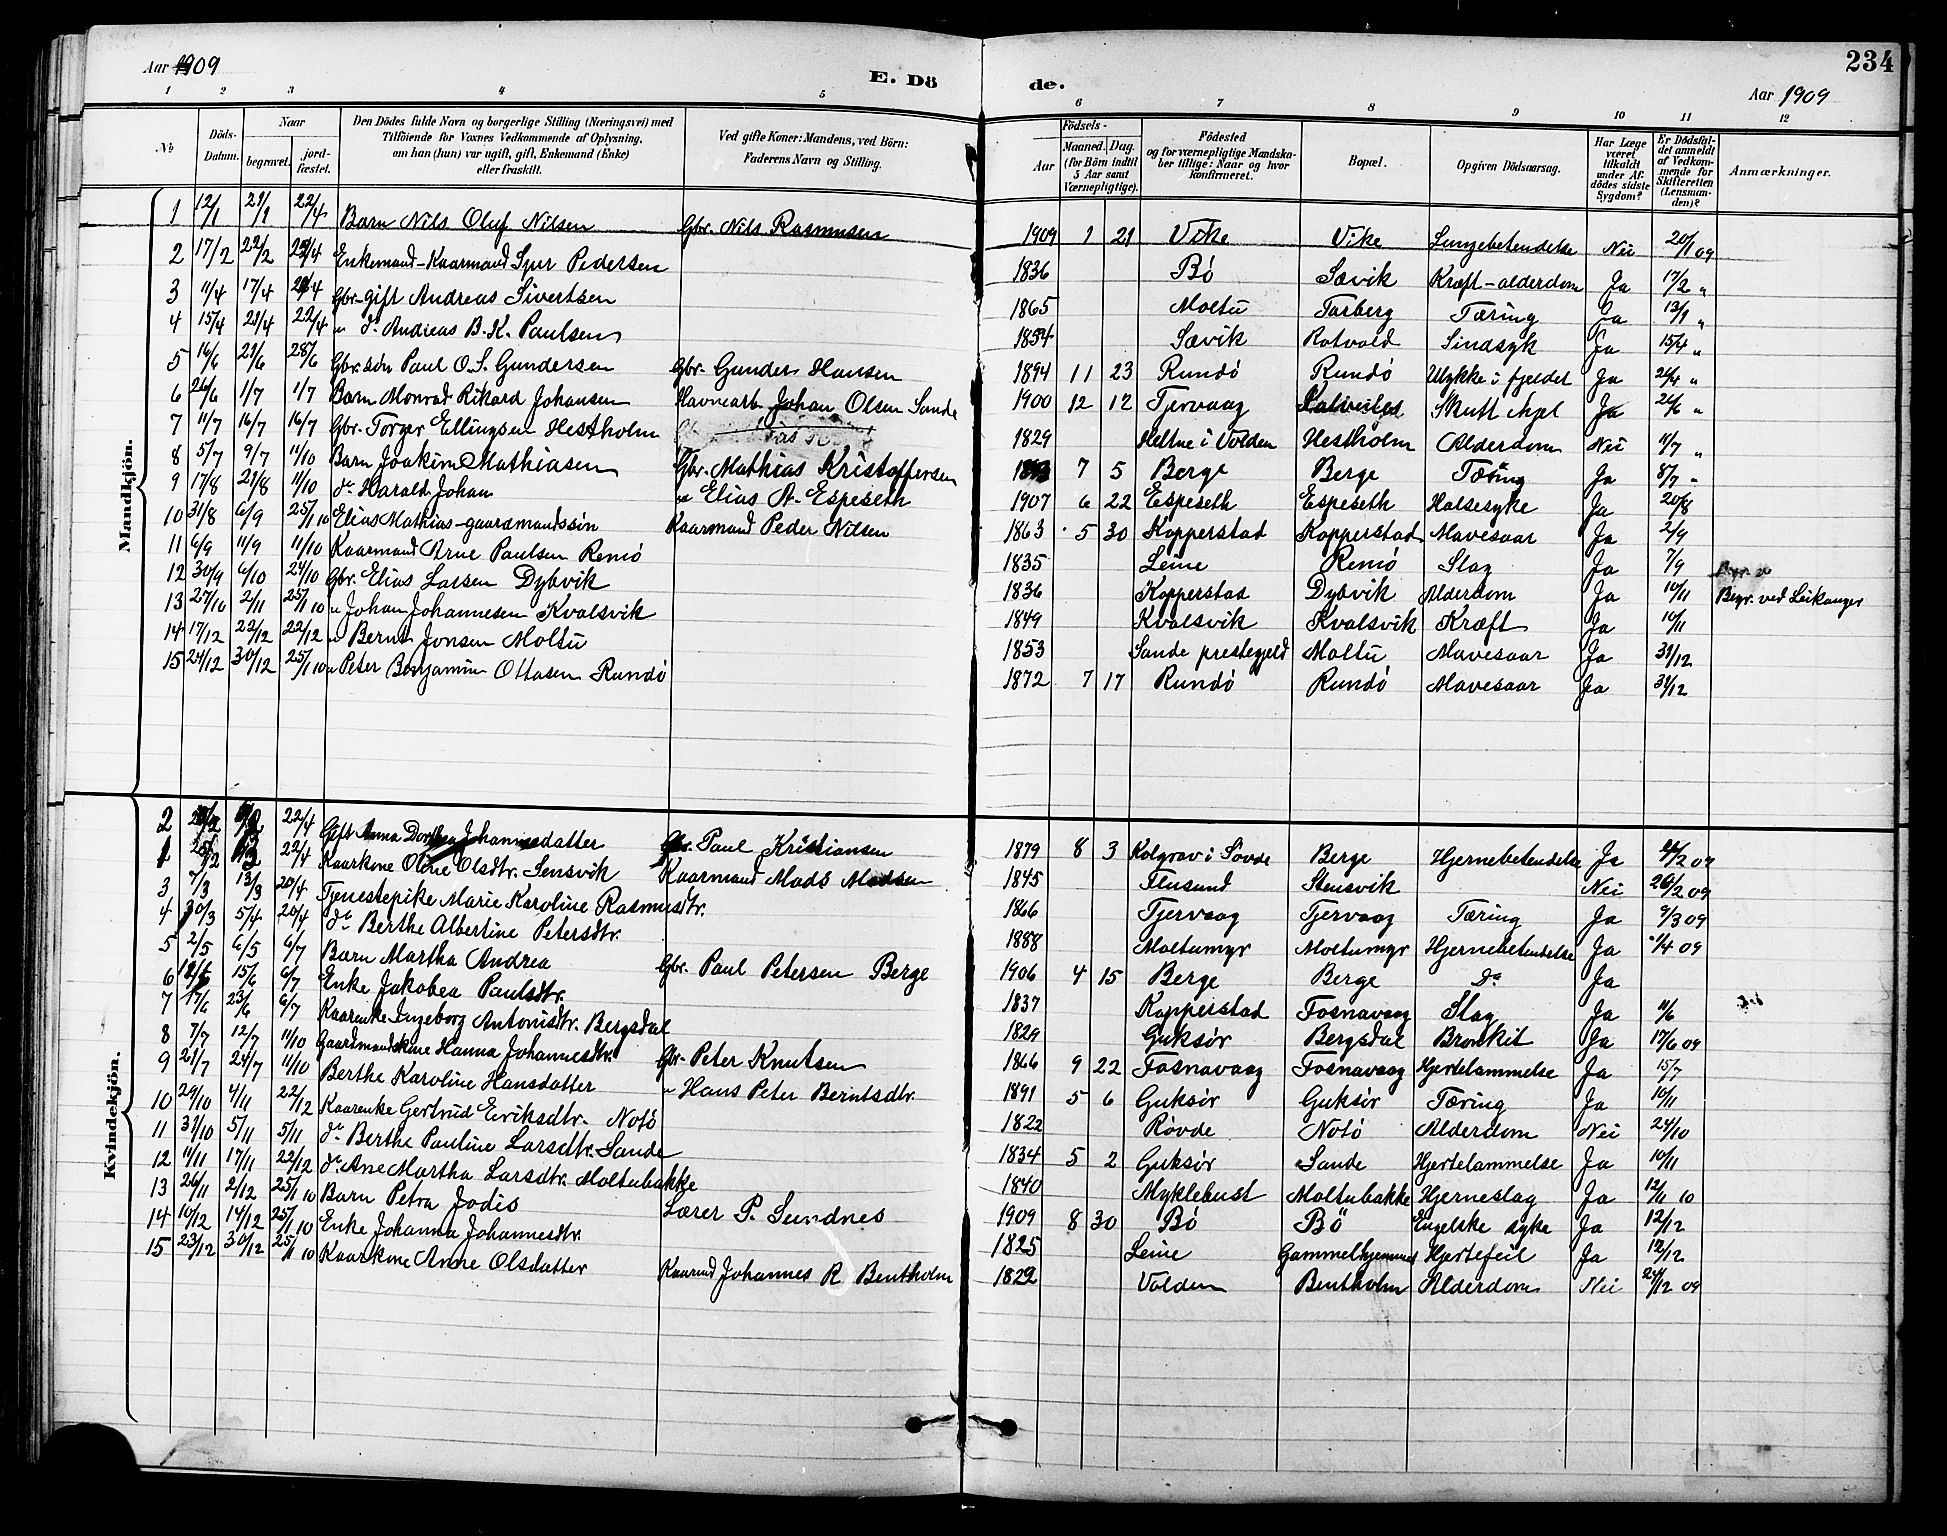 234
Aar 1909
E. Dö
de.
Aar 1909
1 2 3 4 5 6 7 8 9 10 11 12
No
Döds-Datum.
Naar
begravet.
jord-fæstet.
Den Dödes fulde Navn og borgerlige Stilling (Næringsvei) med
Tilföiende for Voxnes Vedkommende af Oplysning,
om han (hun) var ugift, gift, Enkemand (Enke)
eller fraskilt.
Ved gifte Koner: Mandens, ved Börn:
Faderens Navn og Stilling.
Födsels-
Aar
Maaned. Dag.
(for Börn indtil
5 Aar samt
Værnepligtige).
Födested
og for værnepligtige Mandska-
ber tillige: Naar og hvor
konfirmeret.
Bopæl.
Opgiven Dödsaarsag.
Har Læge
været
tilkaldt
under Af-
dödes sidste
Sygdom?
Er Dödsfal-
det anmeldt
af Vedkom-
mende for
Skifteretten
(Lensman-
den)?
Anmærkninger.
Mandkjön.
1 12/1 21/1 22/4 Barn Nils Oluf Nilsen Gbr. Nils Rasmusen 1909 1 21 Vike Vike Lungebetendelse Nei 20/1 09
2 17/2 22/2 22/4 Enkemand-Kaarmand Sjur Pedersen 1836 Bø Sævik Kræft-alderdom Ja 17/2 "
3 11/4 17/4 22/4 Gbr-gift Andreas Sivertsen 1865 Moltu Tarberg Tæring Ja 13/1 "
4 15/4 21/4 22/4 " do Andreas B. K. Paulsen 1854 Sævik Rotvold Sindsyk Ja 15/4 "
5 16/6 21/6 28/6 Gbr. søn Paul O. S. Gundersen Gbr. Gunder Hansen 1894 11 23 Rundö Rundö Ulykke i fjeldet Ja 21/4 "
6 26/6 1/7 1/7 Barn Monrad Rikard Johansen Havnearb. Johan Olsen Sande 1900 12 12 Tjervaag Ja 26/6 "
7 11/7 16/7 16/7 Gbr. Torger Ellingsen Hestholm 1829 Heltne i Volden Hestholm Alderdom Nei 11/7 "
8 5/7 9/7 11/10 Barn Joakim Mathiasen Gbr. Mathias Kristoffersen 7 5 Berge Berge Tæring Ja 8/7 "
9 17/8 21/8 11/10 do Harald Johan " Elias A. Espeseth 1907 6 22 Espeseth Espeseth Halsesyke Ja 20/8
10 31/8 6/9 25/1 10 Elias Mathias-gaardmandssøn Kaarmand Peder Nilsen 1863 5 30 Kopperstad Kopperstad Mavesaar Ja 2/9
11 6/9 11/9 11/10 Kaarmand Arne Paulsen Remö 1835 Leine Remö Slag Ja 7/9
12 30/9 6/10 24/10 Gbr. Elias Larsen Dybvik 1836 Kopperstad Dybvik Alderdom Ja 10/11 Begr. ved Leikanger
13 27/10 2/11 25/1 10 " Johan Johannesen Kvalsvik 1849 Kvalsvik Kvalsvik Kræft Ja 10/11
14 17/12 22/12 22/12 " Bernt Jonsen Moltu 1853 Sande prestegjeld Moltu Mavesaar Ja 31/12
15 24/12 30/12 25/1 10 " Peter Benjamin Ottosen Rundö 1872 7 17 Rundö Rundö Mavesaar Ja 31/12
Kvindekjön.
2 22/4 Gift Anna Dorthea Johannesdatter Gbr. Paul Kristiansen 1879 8 3 Kolgrov i Søvde Berge Hjernebetendelse Ja 09
1 22/4 Kaarkone Oline Olsdtr. Sensvik Kaarmand Mads Madsen 1845 Flusund Stensvik Nei 26/2 09
3 7/3 13/3 20/4 Tjenestepike Marie Karoline Rasmusdtr. 1866 Tjervaag Tjervaag Tæring Ja 9/3 09
4 30/3 5/4 20/4 do Berthe Albertine Petersdtr. 1888 Moltumyr Moltumyr Hjernebetendelse Ja 1/4 09
5 2/5 6/5 6/7 Barn Martha Andrea Gbr. Paul Petersen Berge 1906 4 15 Berge Berge Do Ja
6 15/6 6/7 Enke Jakobea Paulsdtr. 1837 Kopperstad Fosnavaag Slag Ja 11/6
7 17/6 23/6 6/7 Kaarenke Ingeborg Antonisdtr. Bergsdal 1829 Guksør Bergsdal Bronkit Ja 17/6 09
8 7/7 12/7 11/10 Gaardmandskone Hanna Johannesdtr. Gbr. Peter Knutsen 1866 9 22 Fosnavaag Fosnavaag Hjertelammelse Ja 15/7
9 21/7 24/7 11/10 Berthe Karoline Hansdatter " Hans Peter Berntsdtr. 1891 5 6 Guksör Guksör Tæring Ja 10/11
10 29/10 4/11 22/12 Kaarenke Gertrud Eriksdtr. Notö 1822 Røvde Notö Alderdom Nei 24/10
11 31/10 5/11 5/11 do Berthe Pauline Larsdtr. Sande 1834 5 2 Guksör Sande Hjertelammelse Ja 10/11
12 11/11 17/11 22/12 do Ane Martha Larsdtr. Moltubakke 1840 Myklebust Moltubakke Hjerneslag Ja 12/11 10
13 26/11 2/12 25/1 10 Barn Petra Jodis Lærer P. Sundnes 1909 8 30 Bö Bö Engelske syke Ja 12/12
14 10/12 14/12 25/1 10 Enke Johanna Johannesdtr. 1825 Leine Gammelhjemmet Hjertefeil Ja 12/12
15 23/12 30/12 25/1 10 Kaarkone Anne Olsdatter Kaarmd Johannes R. Bentholm 1822 Volden Bentholm Alderdom Nei 24/12 09